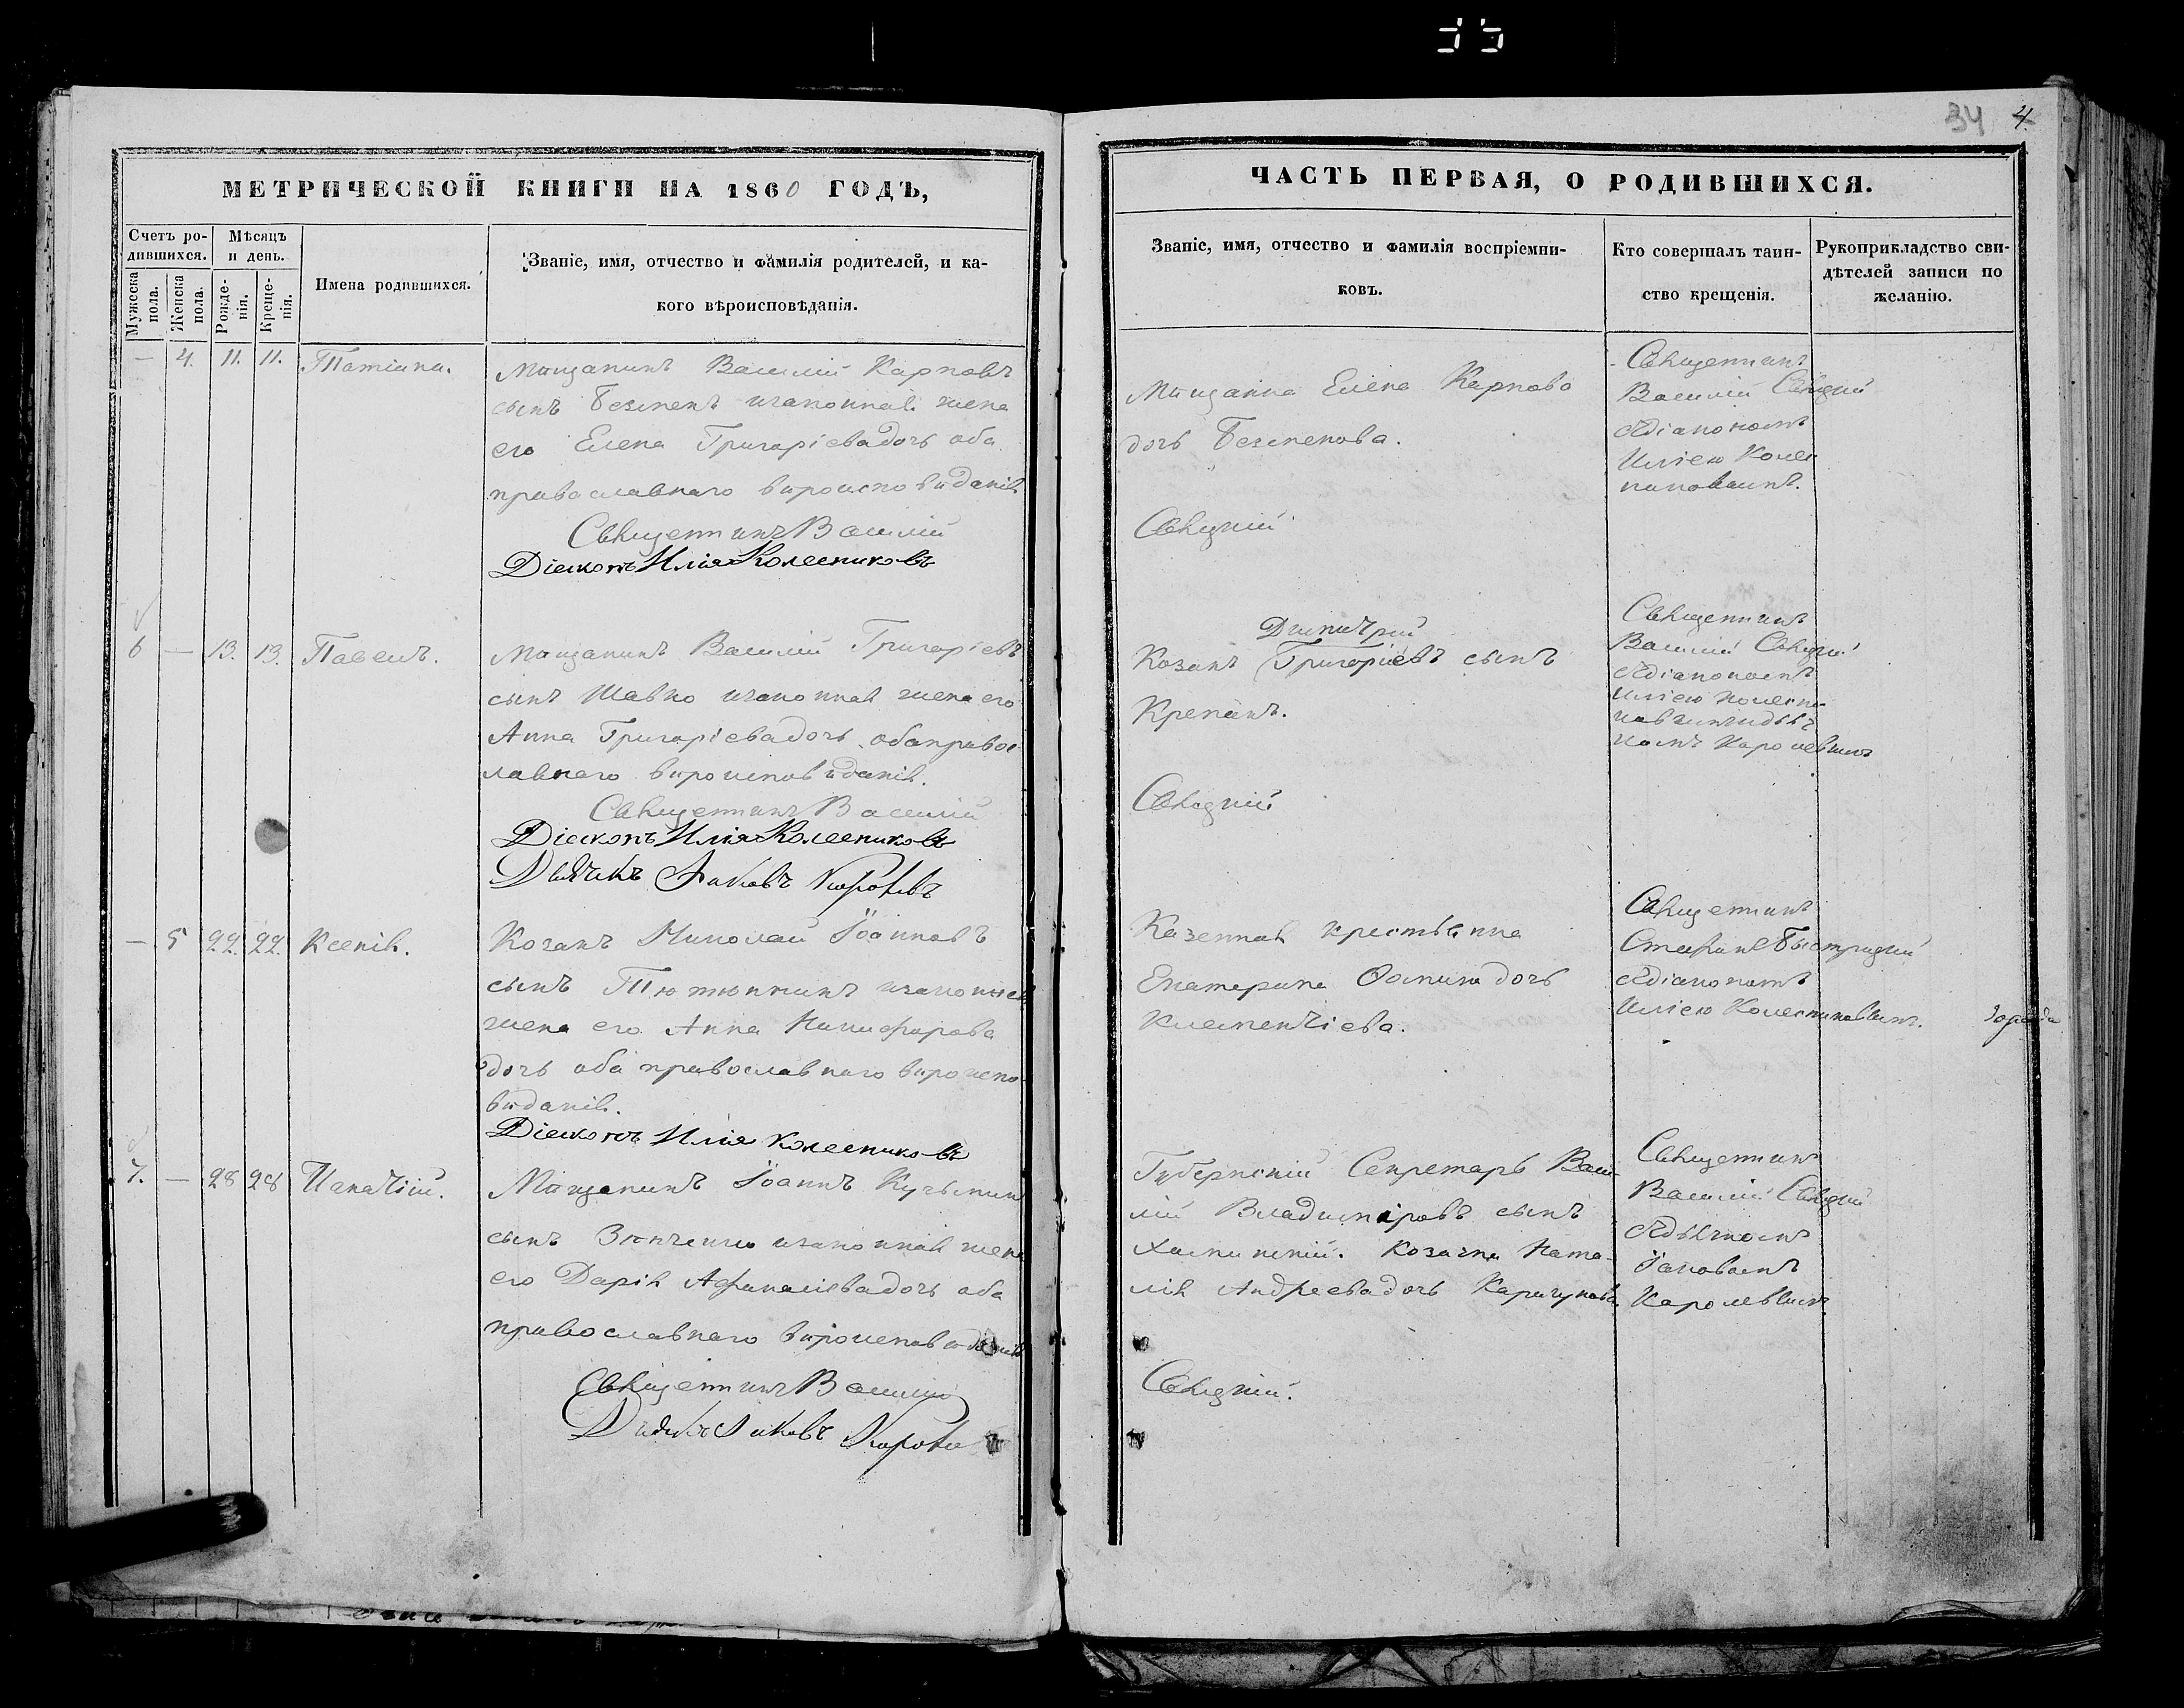 34 4.
МЕТРИЧЕСКОЙ КНИГИ НА 1860 ГОДЪ,
Счетъ ро-
дившихся.
Мѣсяцъ
и день.
Мужеска
пола.
Женска
пола.
Рожде-
нія.
Креще-
нія.
Имена родившихся.
Званіе, имя, отчество и фамилія родителей, и ка-
кого вѣроисповѣданія.
— 4. 11. 11. Татіана.
Мѣщанинъ Василій Карповъ
сынъ Безпекъ изаконная жена
его Елена Григоріева дочь оба
православнаго вѣроисповѣданія
Священникъ Василій
Діаконъ Илія Колесниковъ
6 — 13. 13. Павелъ.
Мѣщанинъ Василій Григоріевъ
сынъ Шавко изаконная жена его
Анна Григоріева дочь оба правос
лавнаго вѣроисповѣданія.
Священникъ Василій
Діаконъ Илія Колесниковъ
Дьячекъ Іаковъ
— 5 22. 22. Ксенія.
Козакъ Николай Іоанновъ
сынъ изаконная
жена его Анна Никифорова
дочь оба православнаго вѣроиспо
вѣданія.
Діаконъ Илія Колесниковъ
7. — 28 28 Игнатій.
Мѣщанинъ Іоаннъ Кузьминъ
сынъ изаконная жена
его Дарія Афанасіева дочь оба
православнаго вѣроисповѣданія
Священникъ Василій
Дьячекъ Іаковъ
ЧАСТЬ ПЕРВАЯ, О РОДИВШИХСЯ.
Званіе, имя, отчество и фамилія воспріемни-
ковъ.
Кто совершалъ таин-
ство крещенія.
Рукоприкладство сви-
дѣтелей записи по
желанію.
Мѣщанка Елена Карпова
дочь Безпекова.
Свѣцкій
Священникъ
Василій Свѣцкій
сдіакономъ
Иліею Колес
никовымъ.
Димитрій
Козакъ Григоріевъ сынъ
Крепакъ.
Свѣцкій
Священникъ
Василій Свѣцкій
сдіакономъ
Иліею Колесни
Казенная крестьянка
Екатерина Фомина дочь
Клементіева.
Священникъ
Стефанъ Быстрицкій
сдіакономъ
Иліею Колесниковымъ.
Губернскій Секретарь Васи
лій Владиміровъ сынъ
Козачка Ната
лія Андреева дочь
Свѣцкій.
Священникъ
Василій Свѣцкій
сдьячкомъ
Іаковомъ
Королевымъ